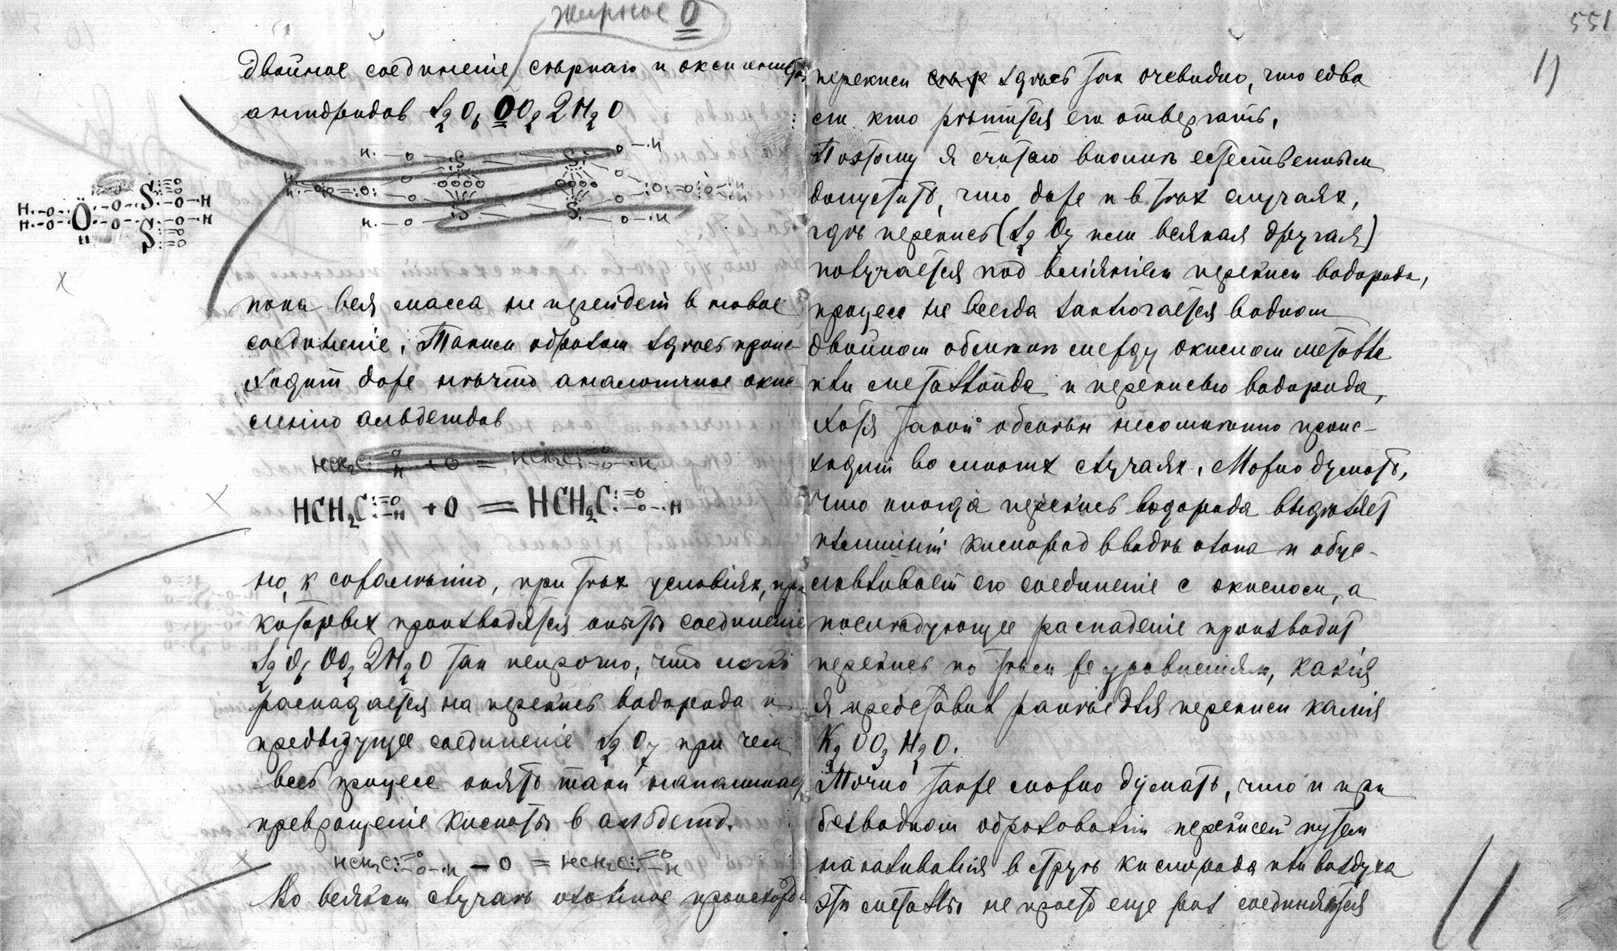 жирное О
двойное соединеніе сѣрнаго и окси
ангидридов S2O6OO2 2H2O
пока вся масса не перейдет в новое
соединеніе. Таким образом здѣсь проис-
ходит даже нѣчто аналогичное окис
ленію альдегидов
HCH2C + O = HCH2C
HCH2C + O = HCH2C
но, к сожалѣнію, при тѣх условіях, при
которых производятся опыты соединеніе
S2O6 OO2 2H2O так непрочно, что
распадается на перекись водорода и
предыдущее соединеніе S2O7 при чем
весь процесс опять таки напоминает
превращеніе кислоты в альдегид.
HCH2C - O = HCH2C
Во всяком случаѣ озонное происхожд
551
11
перекиси здѣсь так очевидно, что едва
ли кто рѣшится его отвергать.
Поэтому я считаю вполнѣ естественным
допустить, что даже и в тѣх случаях,
гдѣ перекись (S2O7 или всякая другая)
получается под вліяніем перекиси водорода,
процесс не всегда заключается в одном
двойном обмѣнѣ между окислом металла
или металлоида и перекисью водорода,
хотя такой обмѣн несомнѣнно проис-
ходит во многих случаях. Можно думать,
что иногда перекись водорода выдѣляет
излишній кислород в видѣ озона и обус-
ловливает его соединеніе с окислом, а
послѣдующее распаденіе производит
перекись по тѣм же уравненіям, какія
я представил ранѣе для перекиси калія
K2OO3H2O.
Точно также можно думать, что и при
безводном образованіи перекисей путем
накаливанія в струѣ кислорода или воздуха
эти металлы не просто еще раз соединяются